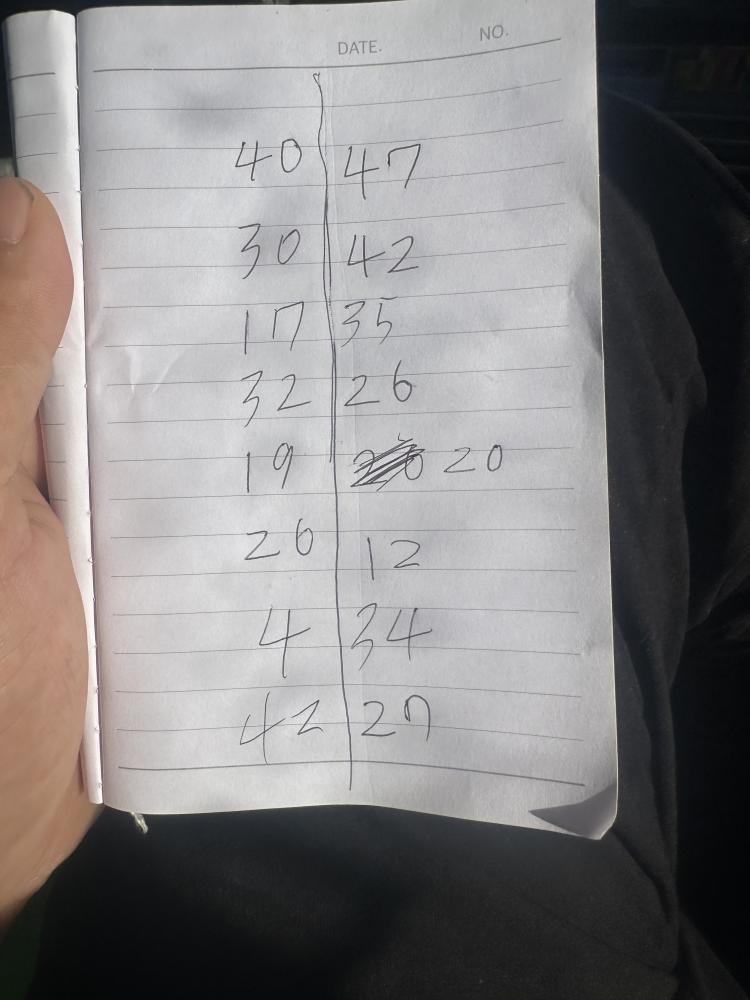 DATE. NO.
40 47
30 42
17 35
32 26
19 20
26 12
4 34
42 27